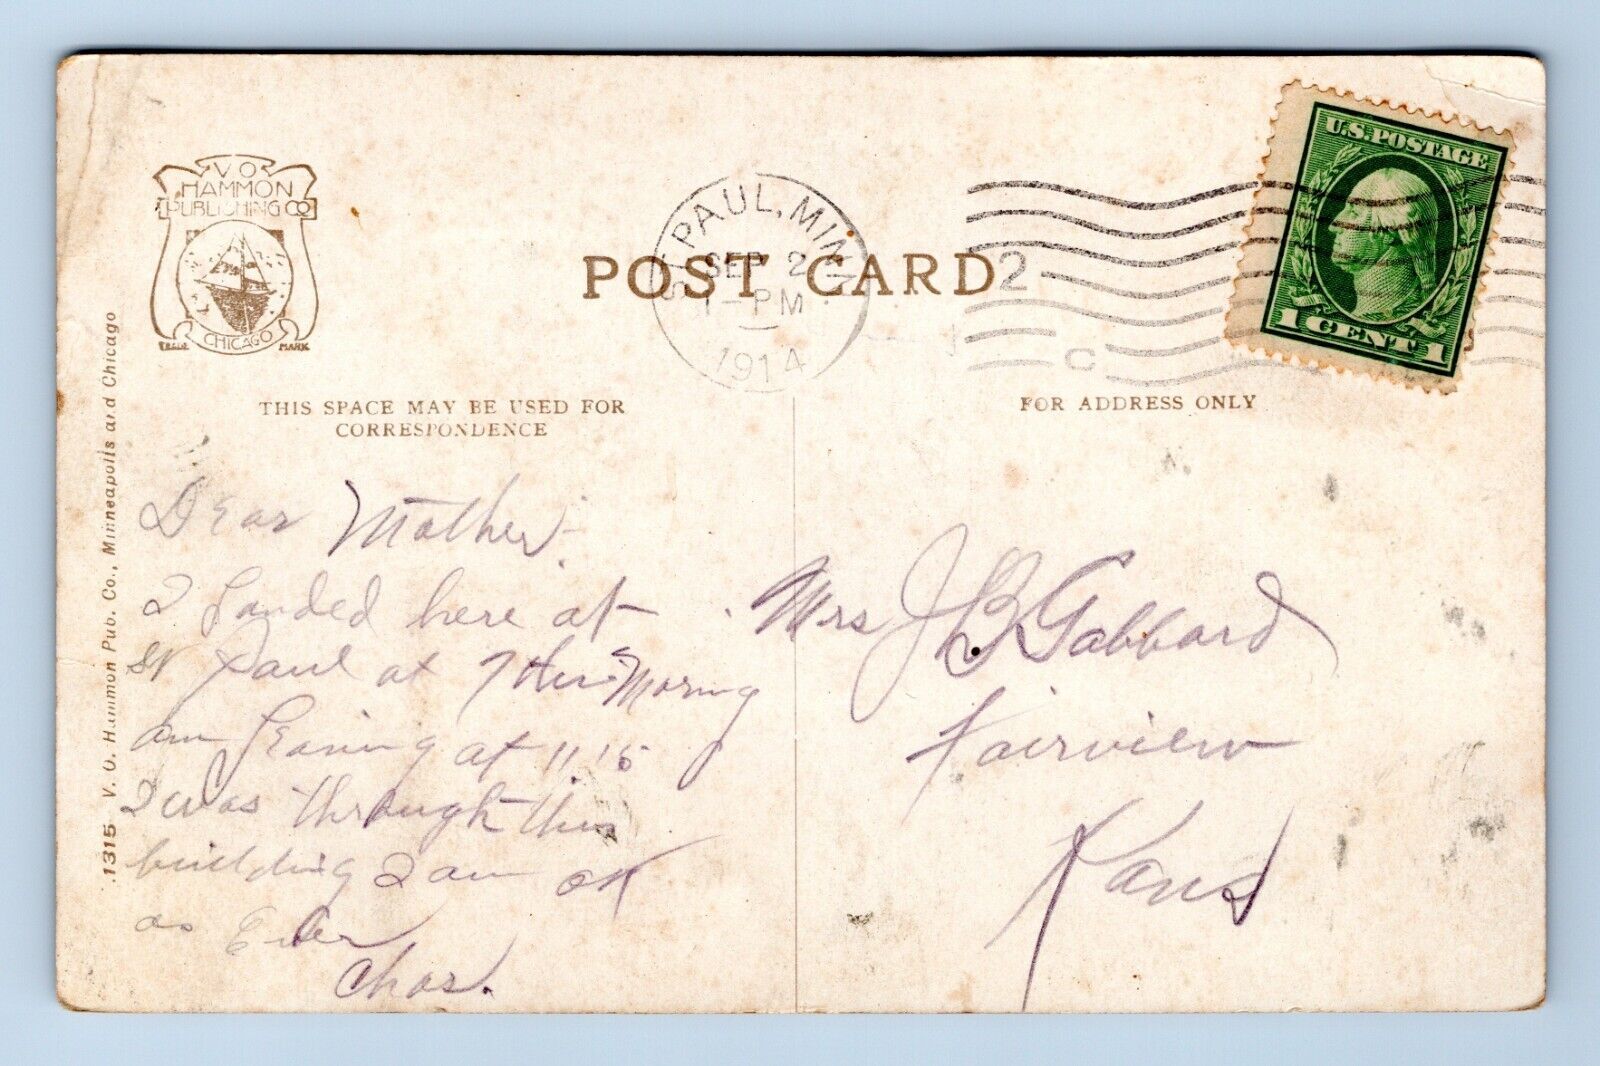 V O
HAMMON
PUBLISHING CO
CHICAGO
TRADE MARK
POST CARD
ST. PAUL, MINN.
SEP 2
1 - PM
1914
2
C
U.S. POSTAGE
1 CENT 1
THIS SPACE MAY BE USED FOR
CORRESPONDENCE
FOR ADDRESS ONLY
1315 V. O. Hammon Pub. Co., Minneapolis and Chicago
Dear Mother
I Landed here at
St Paul at 7 this Morning
am Leaving at 11 15
I was through this
building I am OK
as Ever
Chas.
Mrs J B Gabbard
Fairview
Kans